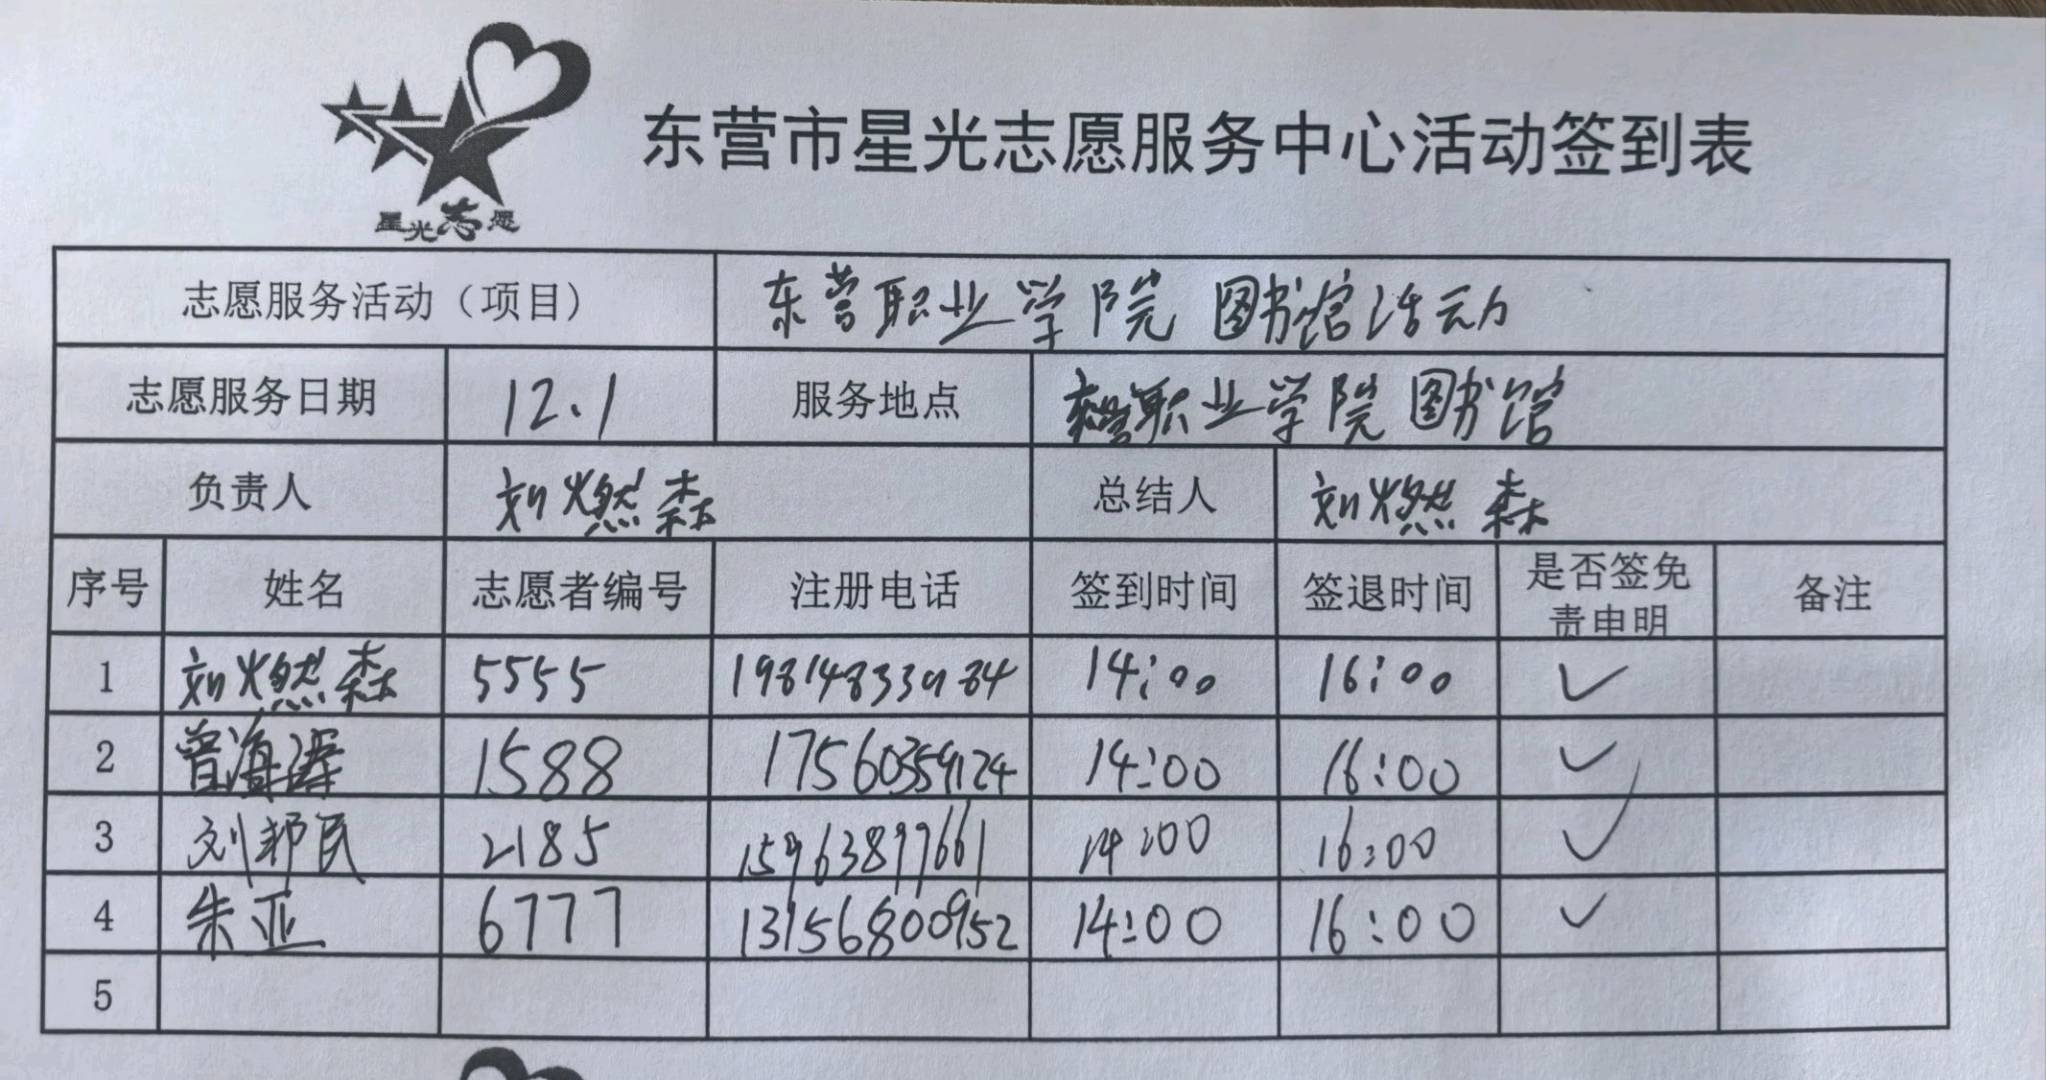 星光志愿
东营市星光志愿服务中心活动签到表
志愿服务活动（项目） 东营职业学院 图书馆活动
志愿服务日期 12.1 服务地点 东营职业学院图书馆
负责人 刘燃森 总结人 刘燃森
序号 姓名 志愿者编号 注册电话 签到时间 签退时间 是否签免责申明 备注
1 刘燃森 5555 19814833984 14:00 16:00 ✓
2 曾海潺 1588 17560359124 14:00 16:00 ✓
3 刘邦民 2185 15963897661 14:00 16:00 ✓
4 朱亚 6777 13156800952 14:00 16:00 ✓
5